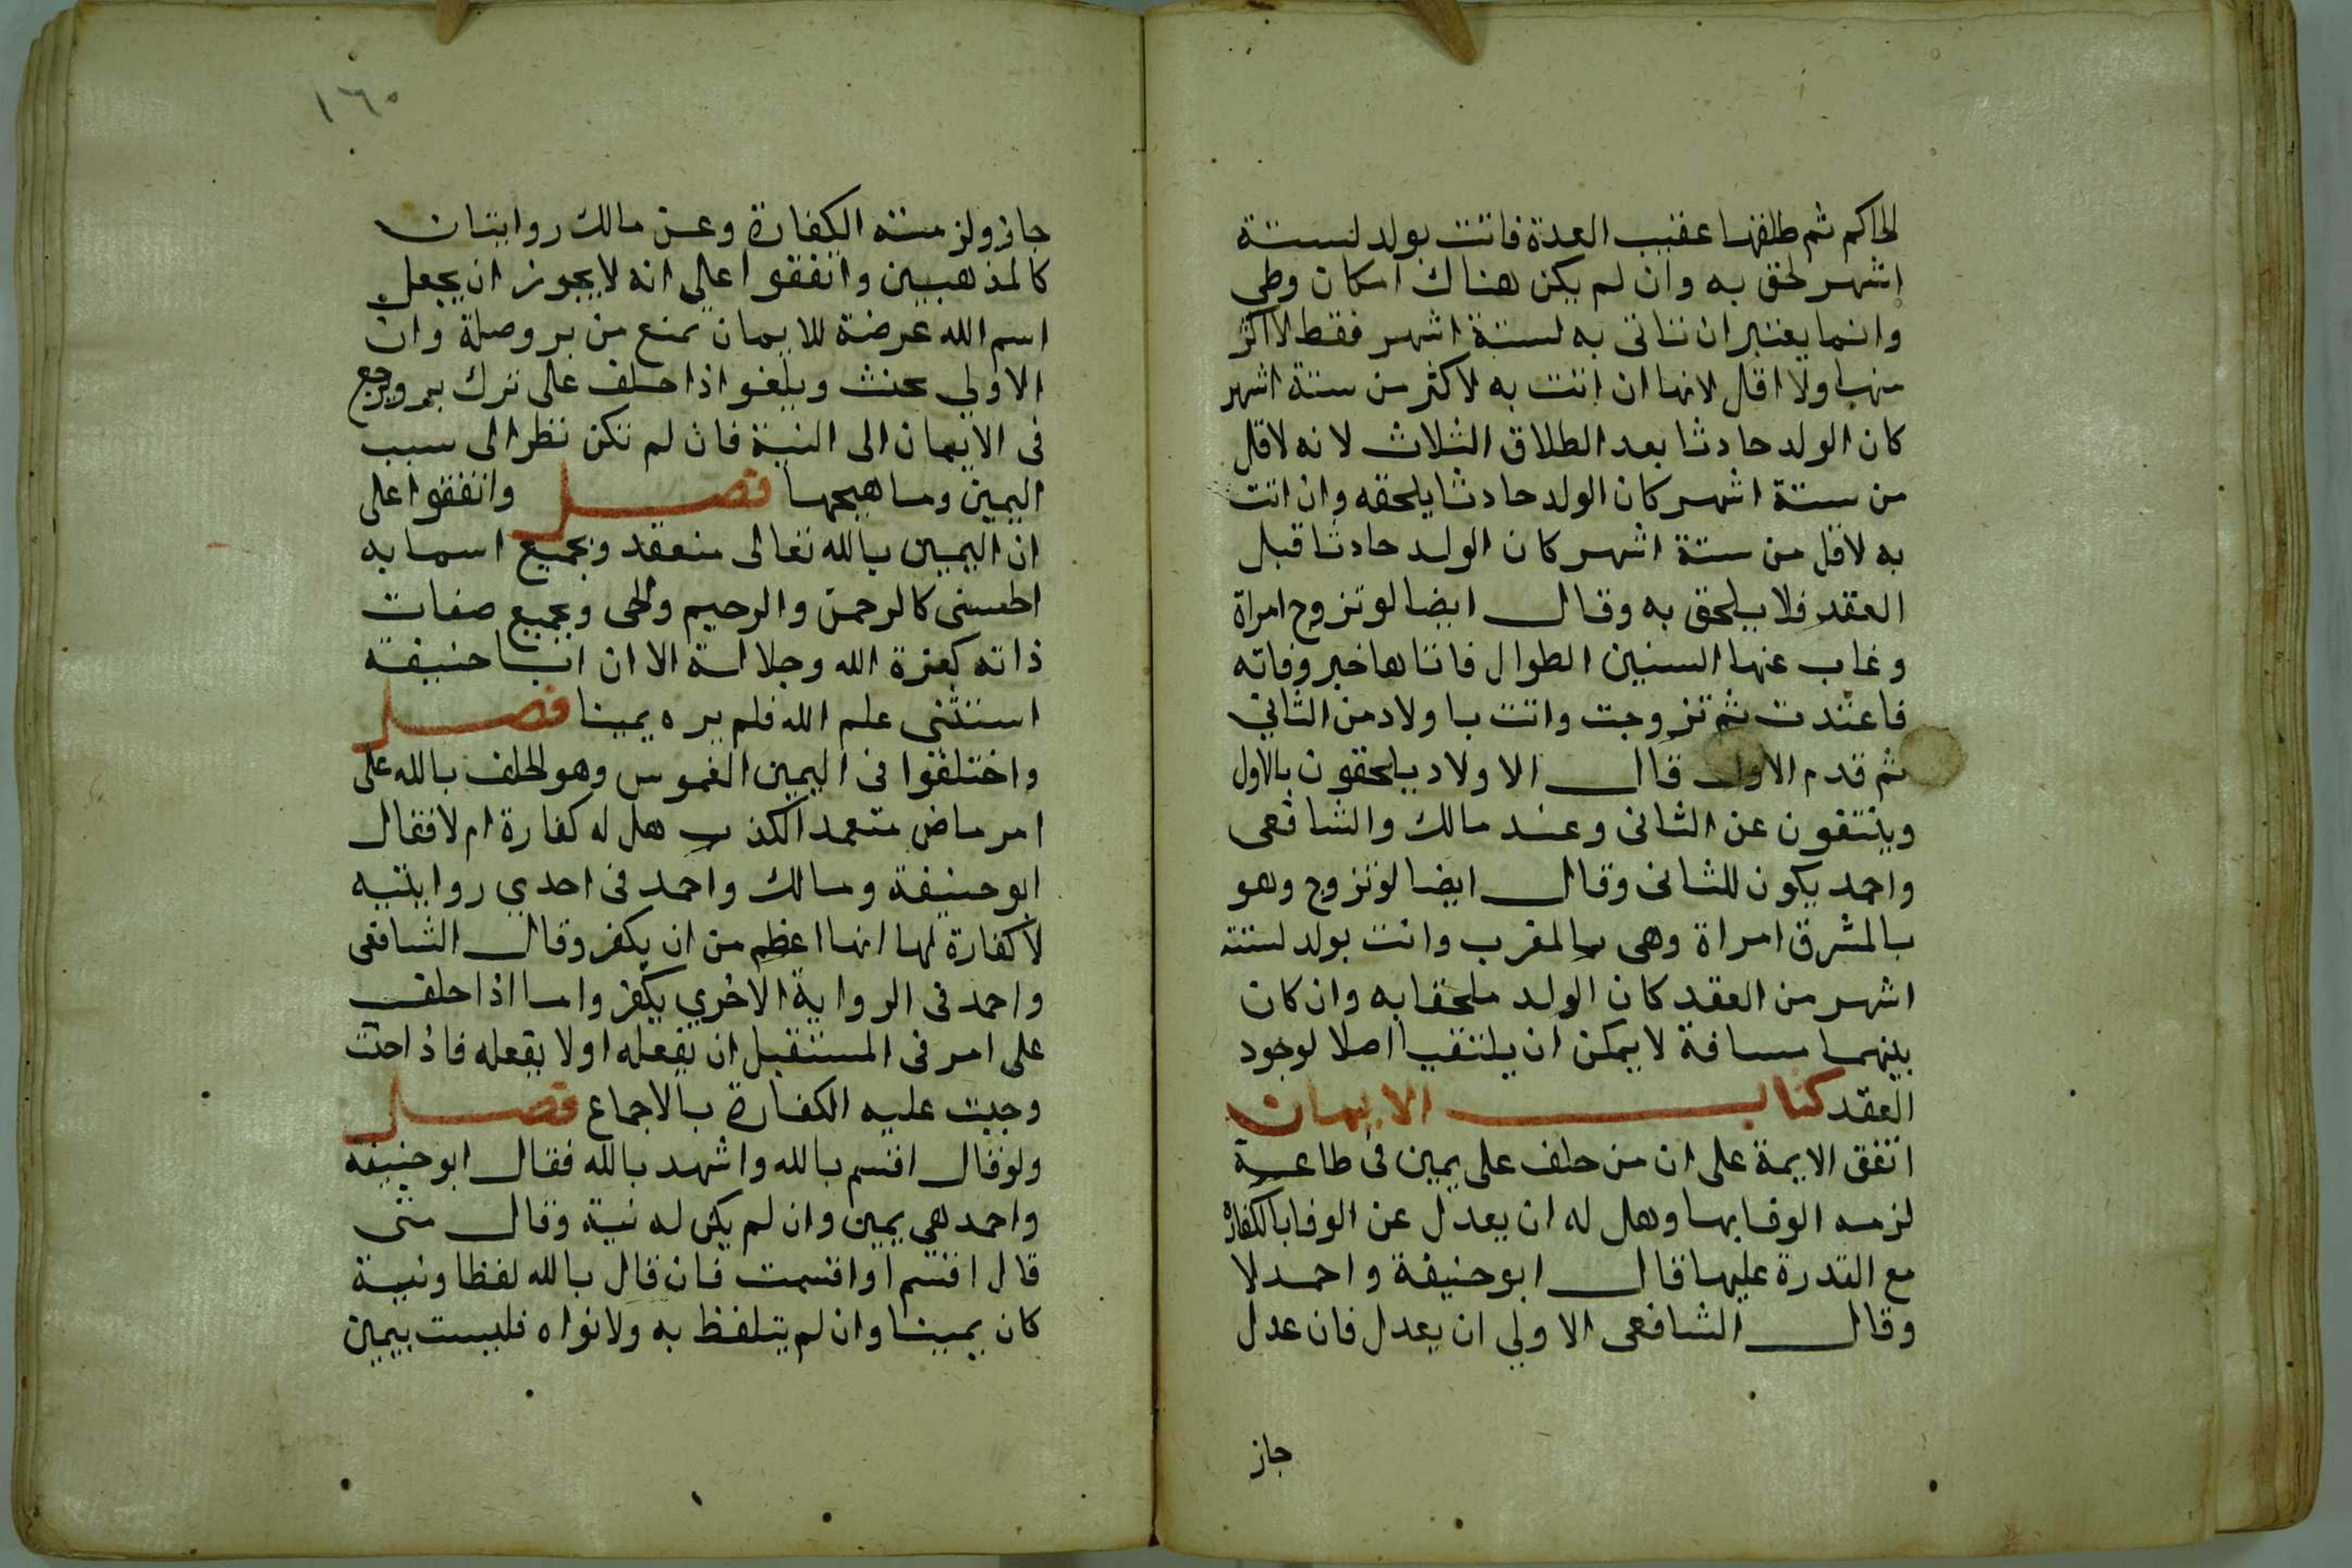 الحاكم ثم طلقها عقيب العدة فاتت بولد لستة
اشهر لحق به وان لم يكن هناك امكان وطي
وانما يعتبر ان تاتى به لستة اشهر فقط لا اكثر
منها ولا اقل لانها ان اتت به لاكثر من ستة اشهر
كان الولد حادثا بعد الطلاق الثلاث لانه لاقل
من ستة اشهر كان الولد حادثا يلحقه وان اتت
به لاقل من ستة اشهر كان الولد حادثا قبل
العقد فلا يلحق به وقال ايضا لو تزوج امراة
وغاب عنها السنين الطوال فاتاها خبر وفاته
فاعتدت ثم تزوجت واتت باولاد من الثاني
ثم قدم الاول قال الاولاد يلحقون بالاول
وينتفون عن الثانى وعند مالك والشافعى
واحمد يكون للثانى وقال ايضا لو تزوج وهو
بالمشرق امراة وهى بالمغرب واتت بولد لستة
اشهر من العقد كان الولد ملحقا به وان كان
بينهما مسافة لا يمكن ان يلتقيا اصلا لوجود
العقد كتاب الايمان
اتفق الايمة على ان من حلف على يمين فى طاعة
لزمه الوفا بها وهل له ان يعدل عن الوفا بالكفارة
مع القدرة عليها قال ابو حنيفة واحمد لا
وقال الشافعى الاولي ان يعدل فان عدل
جاز
١٦٥
جاز ولزمته الكفارة وعن مالك روايتان
كالمذهبين واتفقوا على انه لا يجوز ان يجعل
اسم الله عرضة للايمان يمنع من بر وصلة وان
الاولي يحنث ويلغوا اذا حلف على ترك بر ويرجع
فى الايمان الى النية فان لم تكن نظر الى سبب
اليمين وما هيجها فصل واتفقوا على
ان اليمين بالله تعالى منعقد وبجميع اسمايه
الحسنى كالرحمن والرحيم والحى وبجميع صفات
ذاته كعزة الله وجلاله الا ان ابا حنيفة
استثنى علم الله فلم يره يمينا فصل
واختلفوا فى اليمين الغموس وهو الحلف بالله على
امر ماض متعمد الكذب هل له كفارة ام لا فقال
ابو حنيفة ومالك واحمد فى احدي روايتيه
لا كفارة لها انها اعظم من ان يكفر وقال الشافعى
واحمد فى الرواية الاخري يكفر واما اذا حلف
على امر فى المستقبل ان يفعله او لا يفعله فاذا حنث
وجبت عليه الكفارة بالاجماع فصل
ولو قال اقسم بالله واشهد بالله فقال ابو حنيفة
واحمد هي يمين وان لم يكن له نية وقال متى
قال اقسم او اقسمت فان قال بالله لفظا ونية
كان يمينا وان لم يتلفظ به ولا نواه فليست بيمين